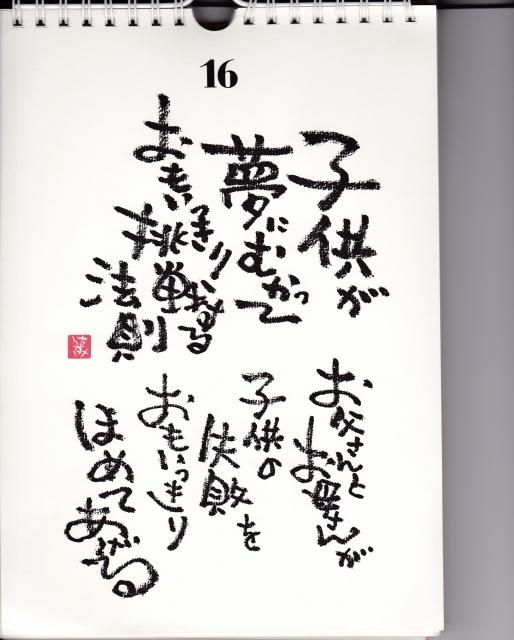 16
子供が
夢にむかって
おもいきり
挑戦する
法則
お父さんと
お母さんが
子供の
失敗を
おもいっきり
ほめてあげる